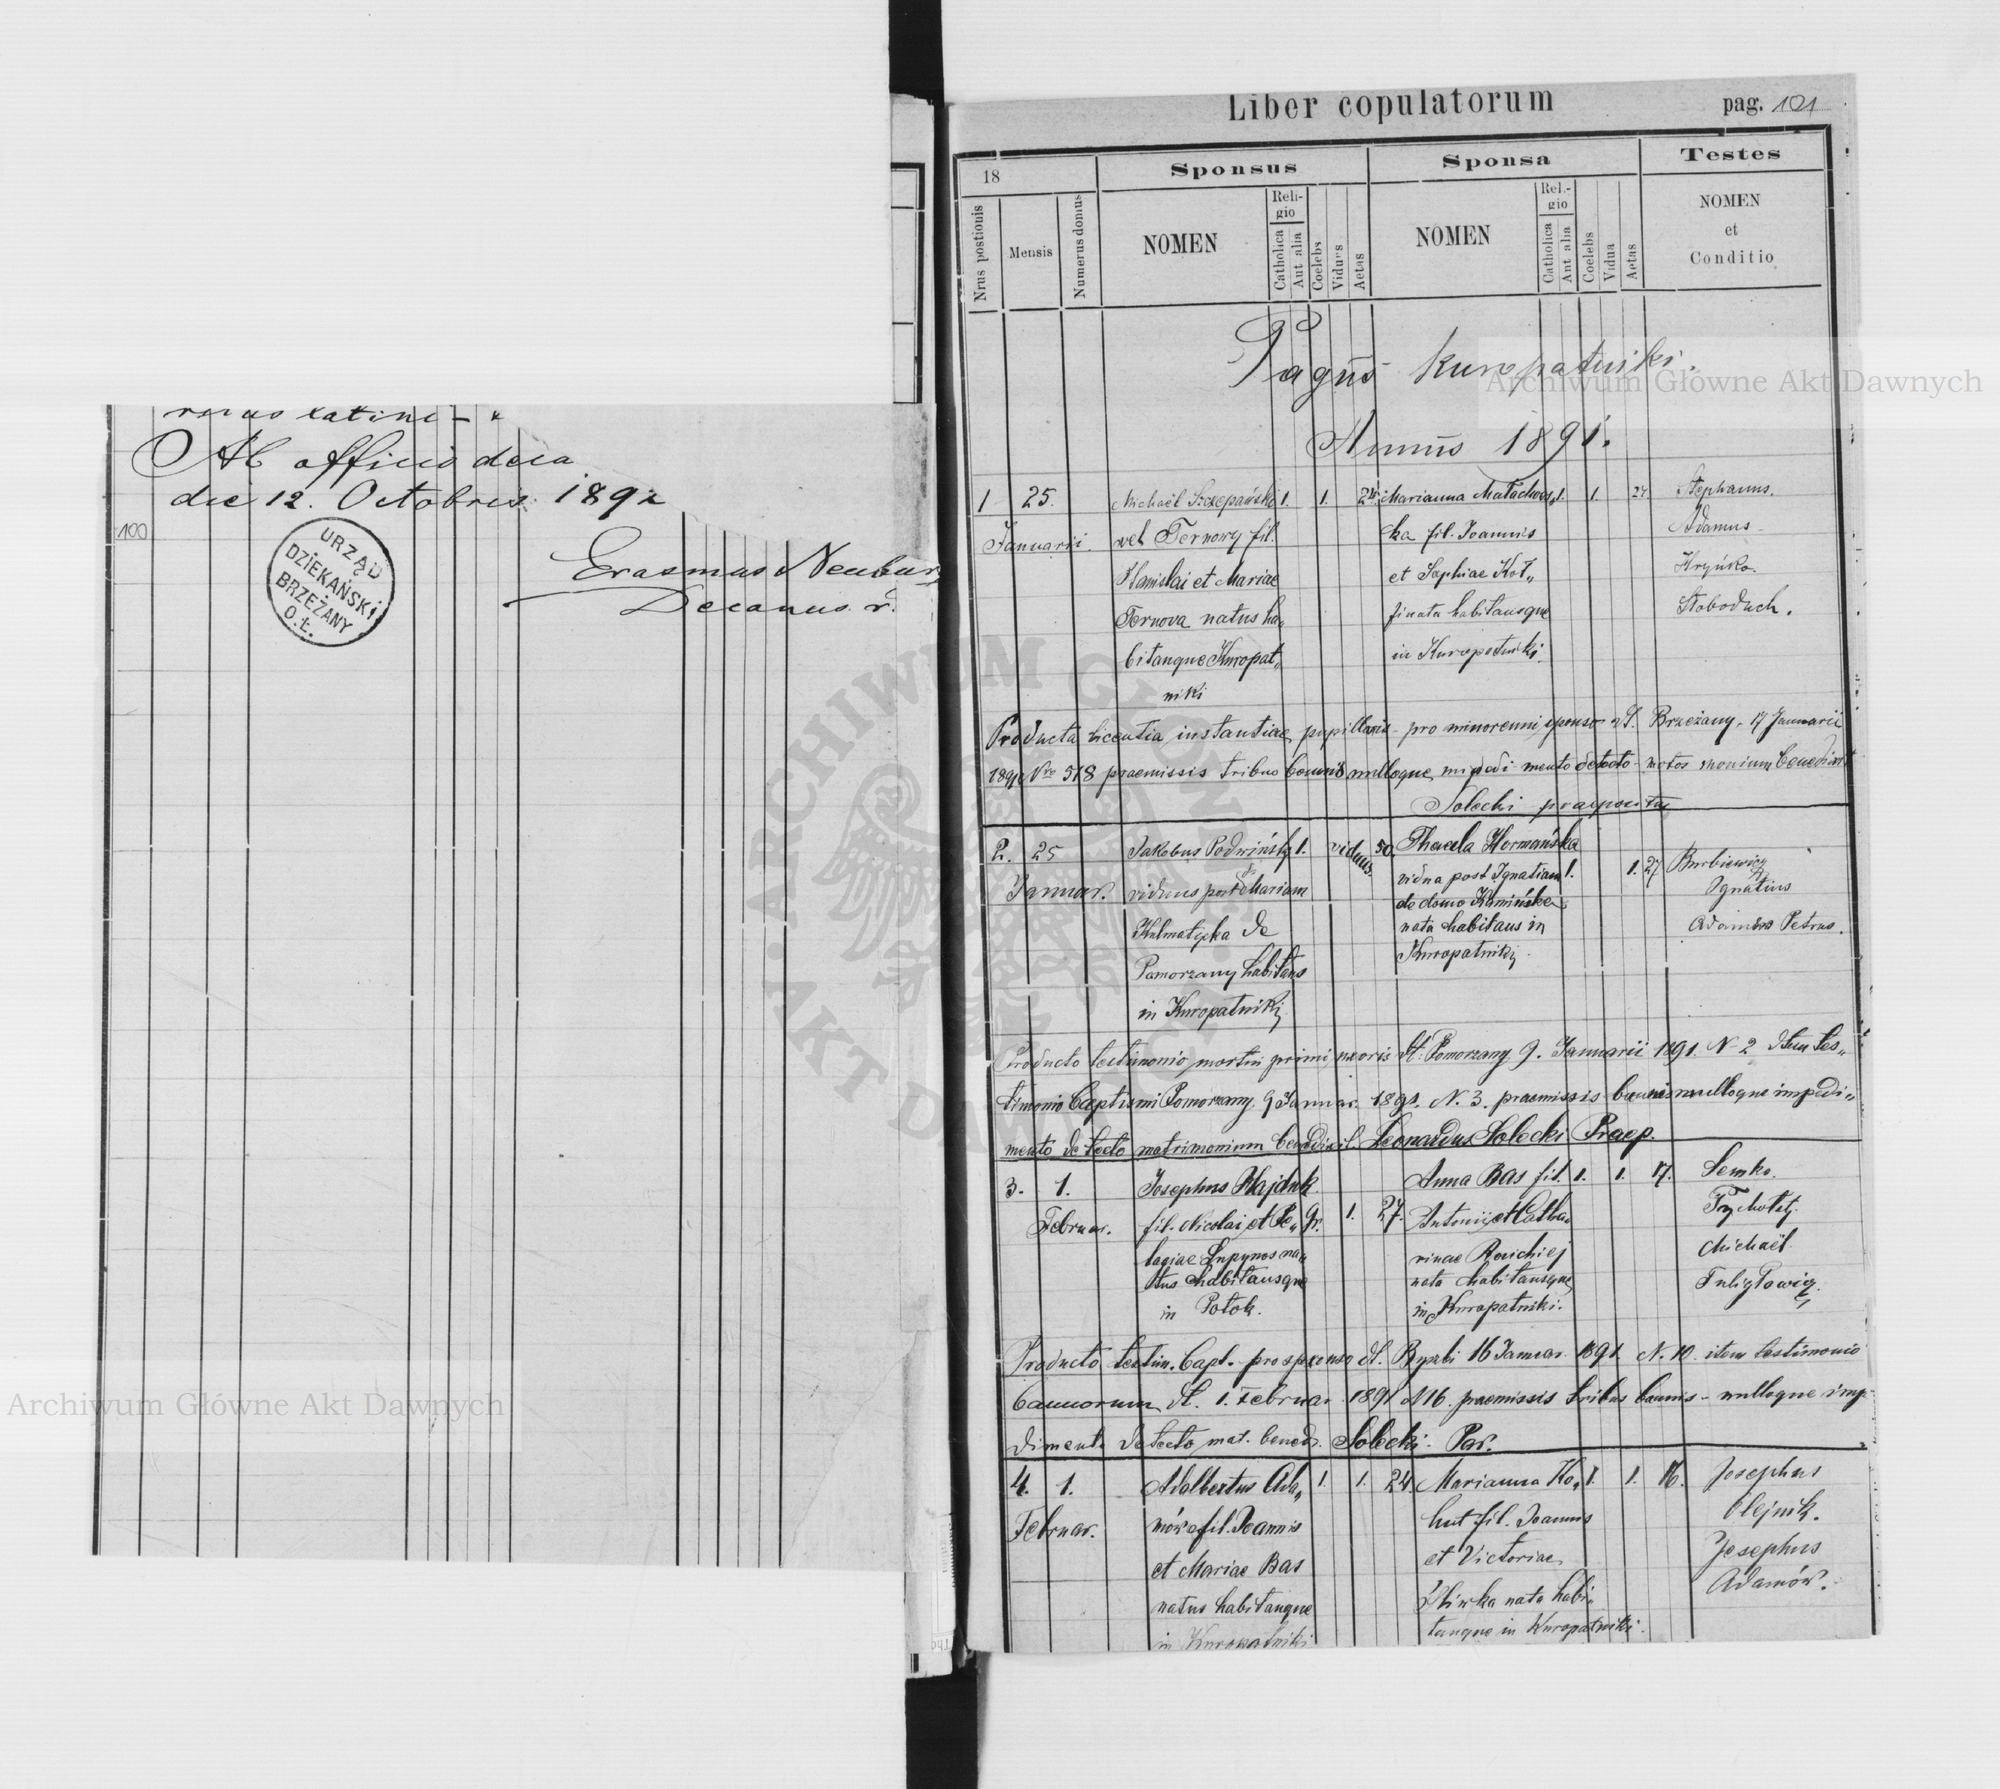 Ab officio deca
die 12. Octobris 1892
100
URZĄD
DZIEKAŃSKI
BRZEŻANY
O.Ł.
Erasmus Neubur
Decanus
Liber copulatorum pag. 101
18
Sponsus
Sponsa
Testes
Nrus postionis
Mensis
Numerus domus
NOMEN
Religio
Catholica
Aut alia
Coelebs
Viduus
Aetas
NOMEN
Religio
Catholica
Aut alia
Coelebs
Vidua
Aetas
NOMEN
et
Conditio
Pagus Kuropatniki.
Annus 1891.
1 25. Michaël Szczepański 1. 1. 24. Marianna Małachows„ 1. 1. 24. Stephanus
Januarii. vel Ternowy fil. ka fil. Joannis Adamus
Stanislai et Mariae et Sophiae Koł„ Hryńko
Ternova natus ha„ habitansque Słoboduch.
bitansque Kuropat„ in Kuropatniki.
niki
Producta licentia instantiae pupillaris pro minorenni sponso dt. Brzeżany 17 Januarii
1891 Nro 518 praemissis tribus bannis nulloque impedimento detecto matrimonium benedixit
Solecki praepositus
2. 25 Jakobus Podwiński 1. viduus. 50. Thecla Hormańska
Januar. viduus post Mariam vidua post Ignatium 1. 1. 27 Burbiewicz
de domo Kamińska Ignatius
Kulmatycka de nata habitans in Adamus Petrus.
Pomorzany habitans Kuropatniki.
in Kuropatniki
Producto testimonio mortis primi uxoris dt: Pomorzany 9. Januarii 1891. N 2 Item tes„
timonio baptismi Pomorzany 9 Januar. 1891. N. 3. praemissis bannis nulloque impedi„
mento detecto matrimonium benedixit Leonardus Solecki Praep.
3. 1. Josephus Hajduk Anna Bas fil. 1. 1. 17. Semko
Februar. fil. Nicolai et Pe„ gr. 1. 27. Antonii et Catha„
lagiae Łupynos na„ rinae Michaël
tus habitansque nata habitansque
in Potok. in Kuropatniki.
Producto testim. bapt. pro sponso dt. 16 Januar 1891 N. 10 item testimonio
bannorum dt. 1. Februar 1891 N 16 praemissis tribus bannis nulloque impe
dimento detecto mat. bened. Solecki Par.
4. 1. Adalbertus Ada„ 1. 1. 24. Marianna Ko„ 1. 1. 16. Josephus
Februar. mów fil. Joannis hut fil. Joannis Olejnik.
et Mariae Bas et Victoriae Josephus
natus habitansque Śliwka nata habi„ Adamów.
in Kuropatniki tansque in Kuropatniki.
Archiwum Główne Akt Dawnych
Archiwum Główne Akt Dawnych
ARCHIWUM GŁÓWNE AKT DAWNYCH